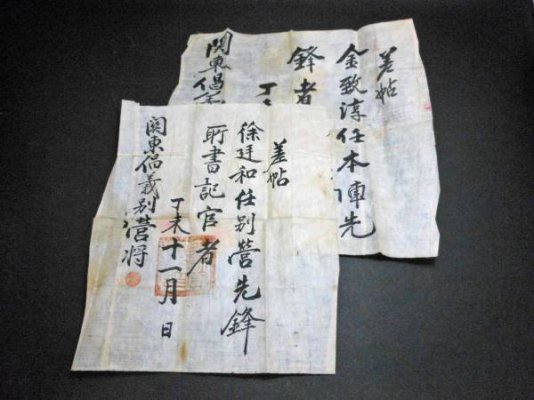 差帖
徐廷和任別營先鋒
所書記官者
丁未十一月 日
関東倡義別營將
差帖
金致淳任本陣先
鋒者
丁
関東倡